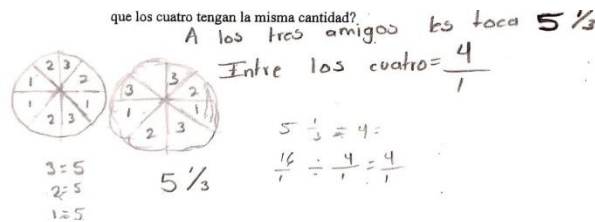 que los cuatro tengan la misma cantidad?
A los tres amigos les toca 5 1/3
Entre los cuatro = 4/1
2 3
1 2
1 1
2 3
3
3 2
1 1
2 3
5 1/3 = 4 =
16/1 ÷ 4/1 = 4/1
3 = 5
2 = 5
1 = 5
5 1/3